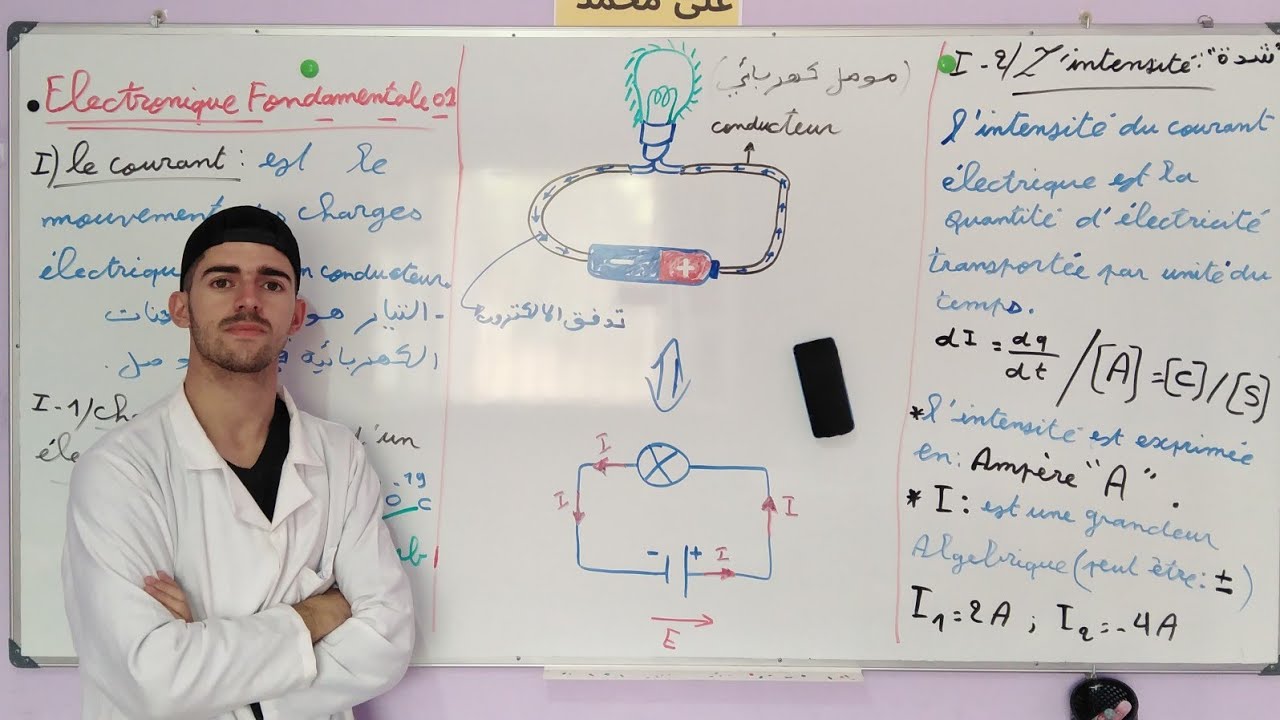 على محمد
Electronique Fondamentale 01
I) le courant : est le
mouvement charges
électrique conducteur.
- التيار هو
الكهربائية
I-1/
élec d'un
-19
C
(موصل كهربائي)
conducteur
- +
تدفق الالكترونات
I
I
I
- +
I
E
I-2/ L'intensité: "شدة"
l'intensité du courant
électrique est la
quantité d'électricité
transportée par unité du
temps.
dI = dq/dt / [A] = [C]/[S]
* l'intensité est exprimée
en: Ampère "A".
* I: est une grandeur
Algebrique (peut être: ±)
I1 = 2A ; I2 = -4A